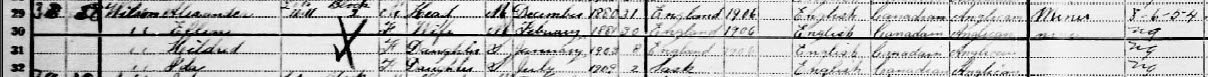 29 Wilson Alexander M Head M December 1880 31 England 1906 English Canadian Anglican Miner
30 " Ellen F Wife M February 1881 30 England 1906 English Canadian Anglican
31 " Mildred F Daughter S January 1903 8 England 1906 English Canadian Anglican
32 " F Daughter S July 1909 2 Sask English Canadian Anglican